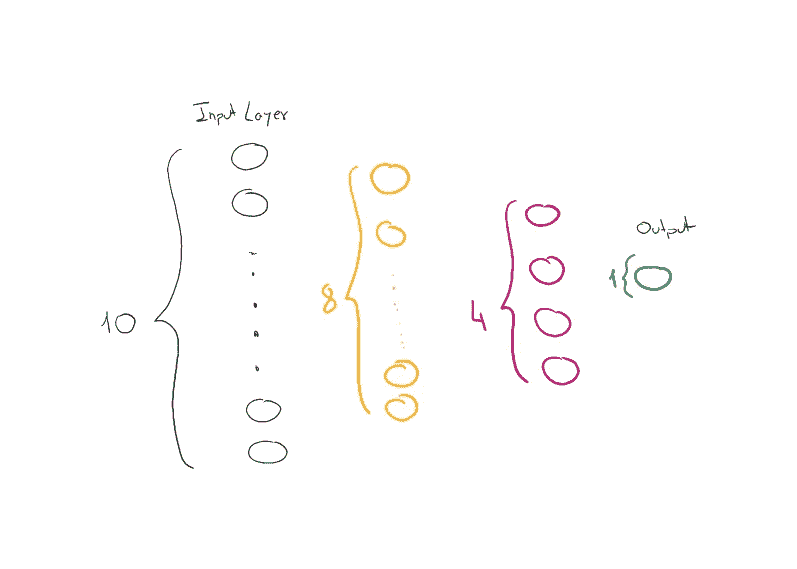 Input Layer
10
8
4
Output
1